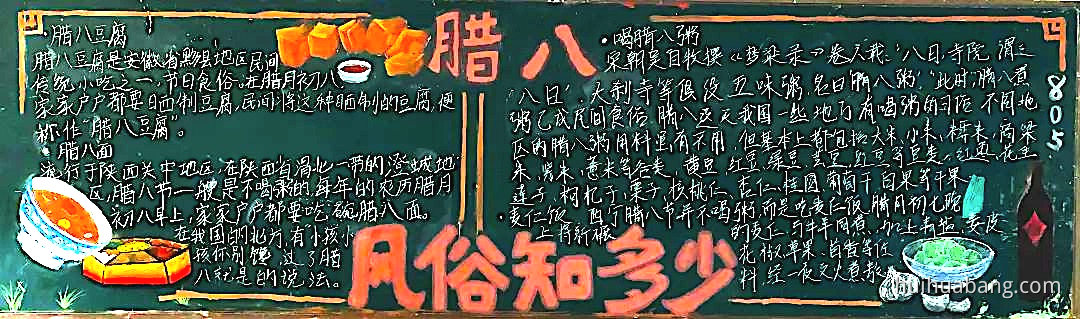 腊八
风俗知多少
·腊八豆腐
腊八豆腐是安徽省黟县地区民间
传统小吃之一,节日食俗。在腊月初八
家家户户都要晒制豆腐,民间将这种晒制的豆腐,便
称作"腊八豆腐"。
·腊八面
流行于陕西关中地区,在陕西省渭北一带的澄城地
区,腊八节一般是不喝粥的,每年的农历腊月
初八早上,家家户户都要吃碗腊八面。
在我国的北方,有小孩小
孩你别馋,过了腊
八就是年的说法。
·喝腊八粥
宋朝吴自牧撰《梦粱录》卷六载:"八日,寺院谓之
'八日',大刹寺等俱设五味粥,名曰'腊八粥'。"此时,腊八煮
粥已成民间食俗。腊八这天我国一些地方有喝粥的习俗,不同地
区的腊八粥用料里有不用,但基本上都包括大米、小米、
米、紫米、薏米等谷类,黄豆、红豆、绿豆、芸豆、豇豆等豆类,红枣、花生、
莲子、枸杞子、栗子、核桃仁、杏仁、桂圆、葡萄干、白果等干果
·麦仁饭 腊八节并不喝粥,而是吃麦仁饭。腊月初七晚
上将新碾 的麦仁,与牛羊肉煮,加上青盐、姜皮
花椒、草果、茴香等佐
料,经一夜文火煮熬
805
huihuabang.com